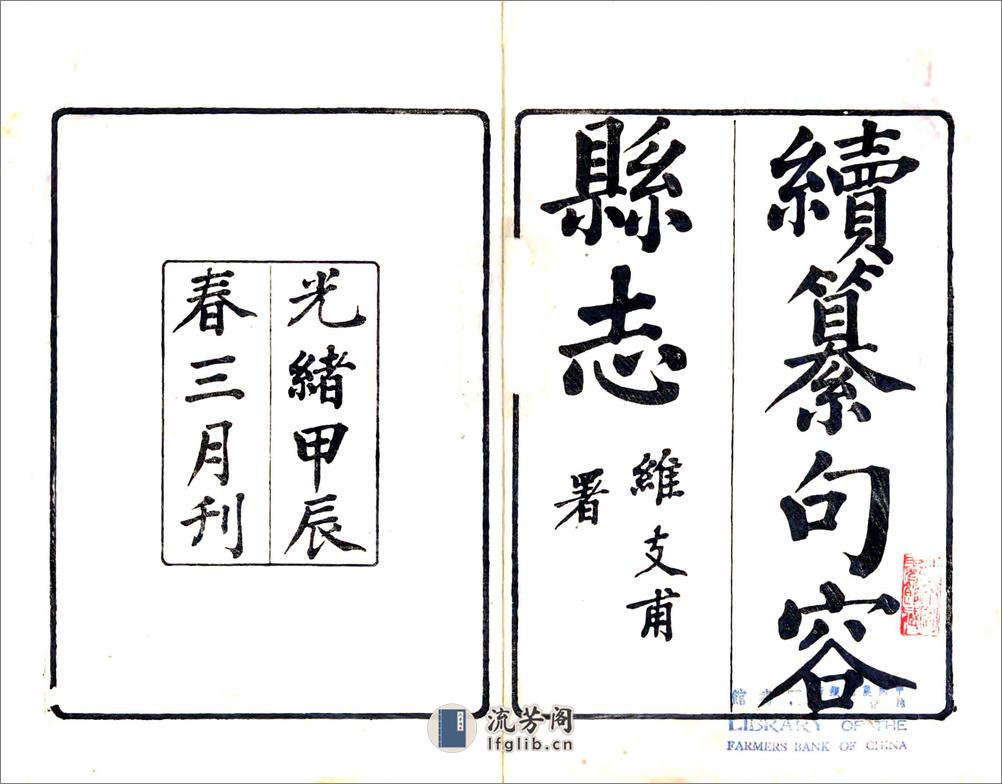 續纂句容
縣志
維支甫
署
光緒甲辰
春三月刊
LIBRARY OF THE
FARMERS BANK OF CHINA
流芳阁
lfglib.cn